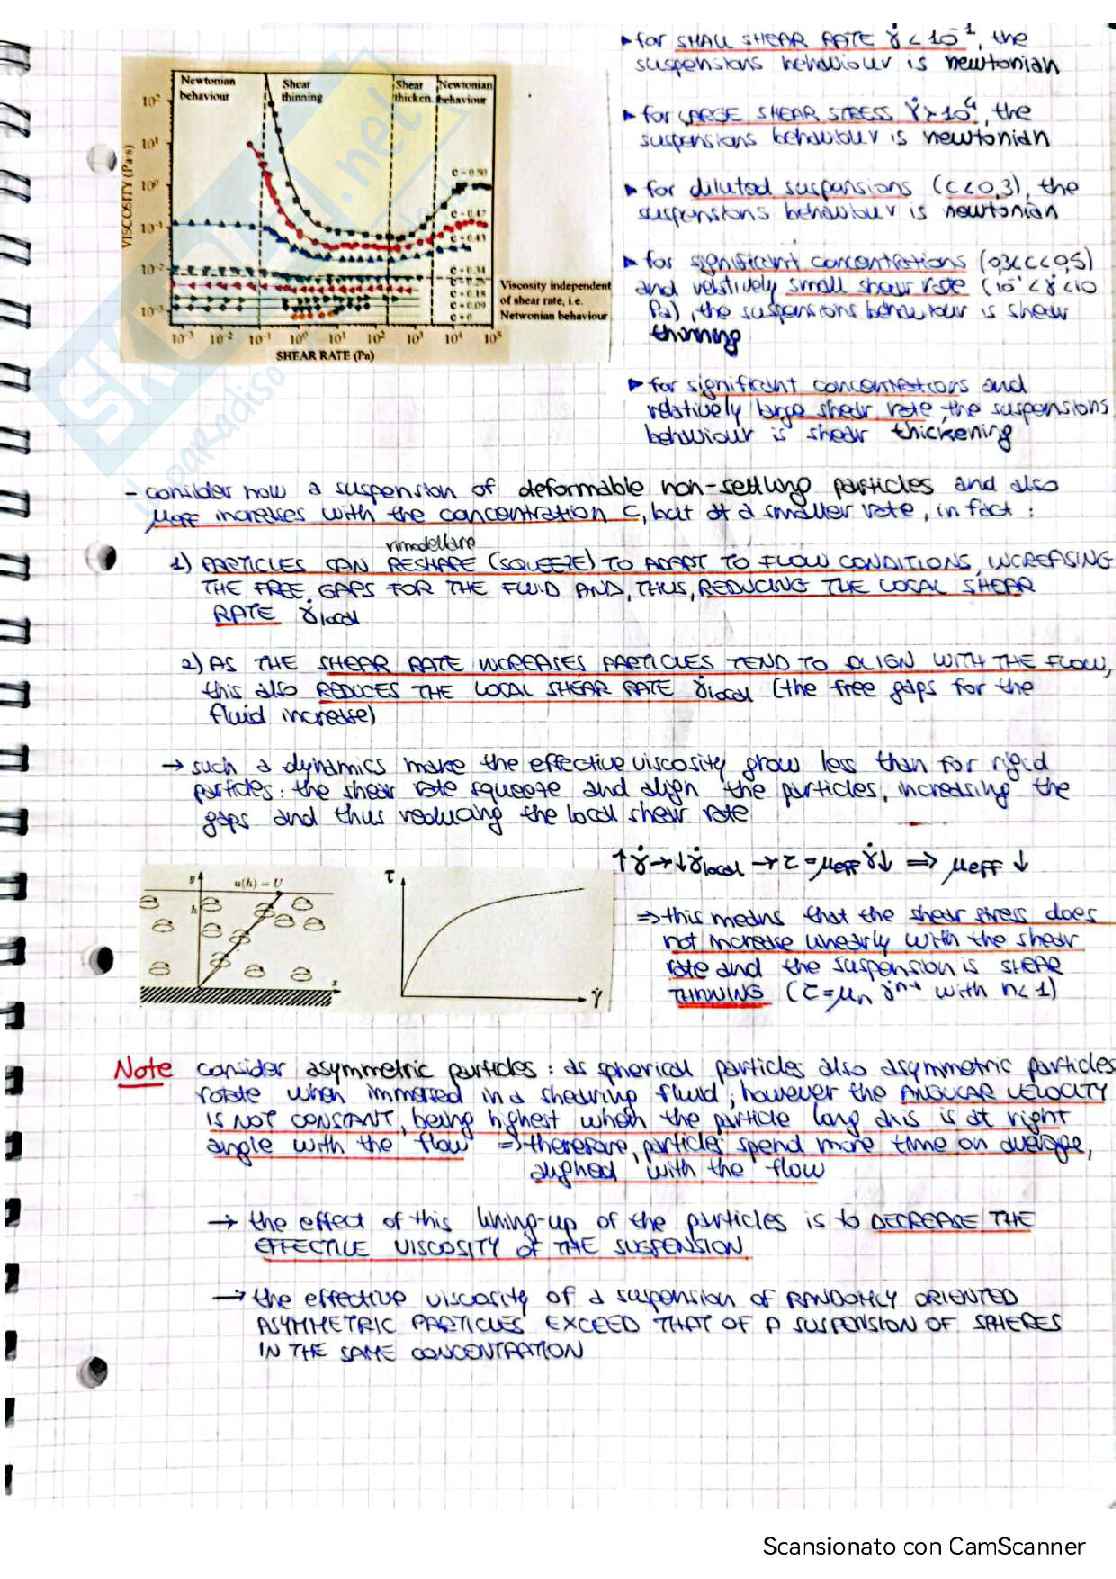 ▸ for SMALL SHEAR RATE γ̇ < 10⁻¹, the
suspensions behaviour is newtonian
▸ for LARGE SHEAR STRESS γ̇ > 10⁴, the
suspensions behaviour is newtonian
▸ for diluted suspensions (c<0,3), the
suspensions behaviour is newtonian
▸ for significant concentrations (0,3<c<0,5)
and relatively small shear rate (10⁻¹<γ̇<10
Pa), the suspensions behaviour is shear
thinning
▸ for significant concentrations and
relatively large shear rate, the suspensions
behaviour is shear thickening
Newtonian behaviour
Shear thinning
Shear thicken.
Newtonian behaviour
VISCOSITY (Pa·s)
10² 10¹ 10⁰ 10⁻¹ 10⁻² 10⁻³
c = 0.50
c = 0.47
c = 0.43
c = 0.34
c = 0.18
c = 0.09
c = 0
Viscosity independent
of shear rate, i.e.
Netwonian behaviour
10⁻³ 10⁻² 10⁻¹ 10⁰ 10¹ 10² 10³ 10⁴ 10⁵
SHEAR RATE (Pa)
- consider now a suspension of deformable non-settling particles and also
μeff increases with the concentration c, but at a smaller rate, in fact:
rimodellare
1) PARTICLES CAN RESHAPE (SQUEEZE) TO ADAPT TO FLOW CONDITIONS, INCREASING
THE FREE GAPS FOR THE FLUID AND, THUS, REDUCING THE LOCAL SHEAR
RATE γ̇local
2) AS THE SHEAR RATE INCREASES PARTICLES TEND TO ALIGN WITH THE FLOW,
this also REDUCES THE LOCAL SHEAR RATE γ̇local (the free gaps for the
fluid increase)
→ such a dynamics make the effective viscosity grow less than for rigid
particles: the shear rate squeeze and align the particles, increasing the
gaps and thus reducing the local shear rate
↑γ̇ → ↓γ̇local → τ = μeff γ̇↓ ⇒ μeff ↓
y u(h) = U
h
x
τ
γ̇
⇒ this means that the shear stress does
not increase linearly with the shear
rate and the suspension is SHEAR
THINNING (τ = μn γ̇ⁿ⁻¹ with n<1)
Note consider asymmetric particles: as spherical particles also asymmetric particles
rotate when immersed in a shearing fluid; however the ANGULAR VELOCITY
IS NOT CONSTANT, being highest when the particle long axis is at right
angle with the flow ⇒ therefore, particles spend more time on average,
aligned with the flow
→ the effect of this lining-up of the particles is to DECREASE THE
EFFECTIVE VISCOSITY OF THE SUSPENSION
→ the effective viscosity of a suspension of RANDOMLY ORIENTED
ASYMMETRIC PARTICLES EXCEED THAT OF A SUSPENSION OF SPHERES
IN THE SAME CONCENTRATION
Scansionato con CamScanner